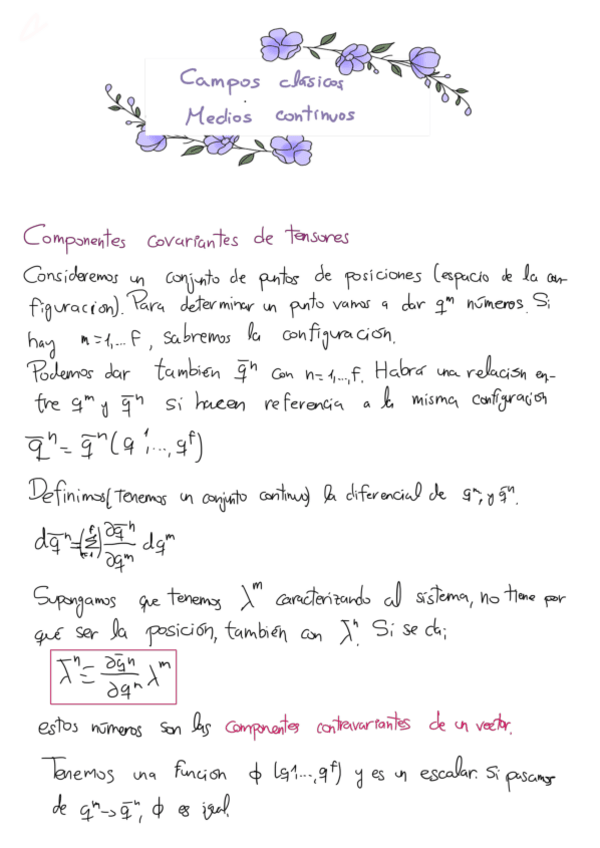 Campos clásicos
Medios contínuos
Componentes covariantes de tensores
Consideremos un conjunto de puntos de posiciones (espacio de la con-
figuracion). Para determinar un punto vamos a dar qᵐ números. Si
hay m=1,... f, sabremos la configuración.
Podemos dar también q̄ⁿ con n=1,...,f. Habrá una relación en-
tre qᵐ y q̄ⁿ si hacen referencia a la misma configuración
q̄ⁿ = q̄ⁿ(q¹,..., qᶠ)
Definimos (tenemos un conjunto continuo) la diferencial de qⁿ, y q̄ⁿ.
dq̄ⁿ = (Σ) ∂q̄ⁿ/∂qᵐ dqᵐ
Supongamos que tenemos λᵐ caracterizando al sistema, no tiene por
qué ser la posición, también con λ̄ⁿ. Si se da;
λ̄ⁿ = ∂q̄ⁿ/∂qⁿ λᵐ
estos números son las componentes contravariantes de un vector.
Tenemos una función ϕ (q1..., qᶠ) y es un escalar. Si pasamos
de qⁿ→q̄ⁿ, ϕ es igual.